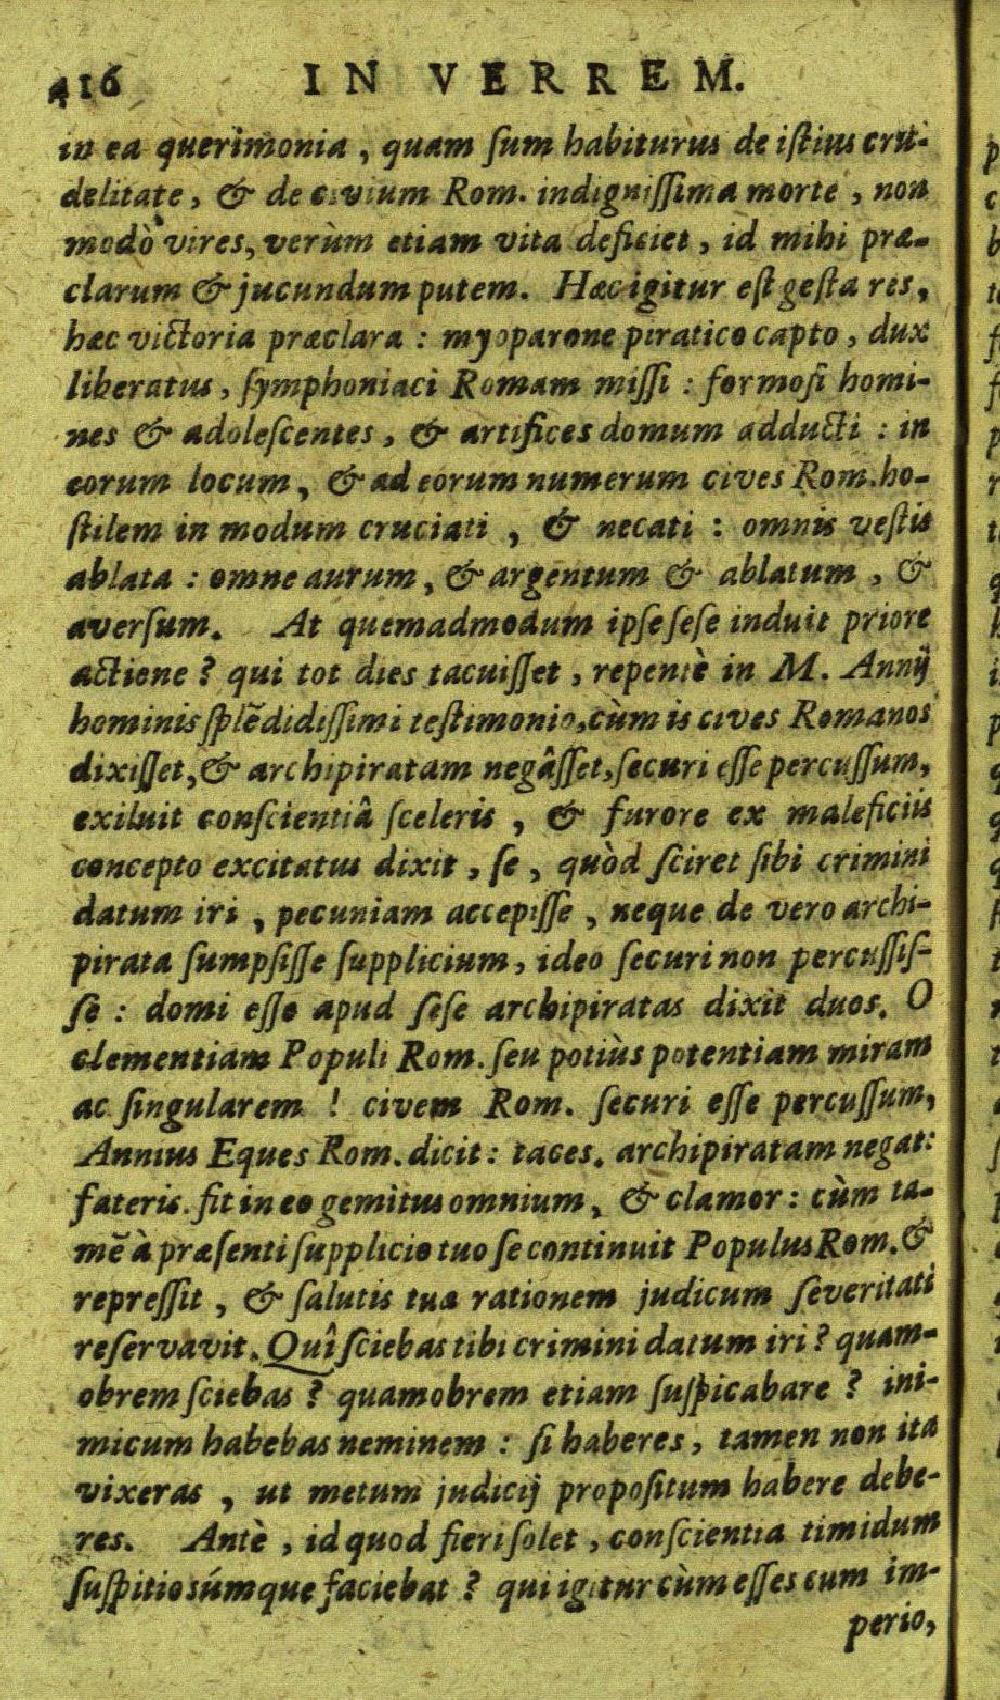 416 IN VERREM.
in ea querimonia, quam ſum habiturus de iſtius cru-
delitate, & de civium Rom. indigniſſima morte, non
modò vires, verùm etiam vita deficiet, id mihi præ-
clarum & jucundum putem. Hæc igitur eſt geſta res,
hæc victoria præclara: myoparone piratico capto, dux
liberatus, ſymphoniaci Romam miſſi: formoſi homi-
nes & adoleſcentes, & artifices domum adducti: in
eorum locum, & ad eorum numerum cives Rom. ho-
ſtilem in modum cruciati, & necati: omnis veſtis
ablata: omne aurum, & argentum & ablatum, &
averſum. At quemadmodum ipſe ſeſe induit priore
actione? qui tot dies tacuiſſet, repentè in M. Annij
hominis ſplēdidiſſimi teſtimonio, cùm is cives Romanos
dixiſſet, & archipiratam negâſſet, ſecuri eſſe percuſſum,
exiluit conſcientiâ ſceleris, & furore ex maleficiis
concepto excitatus dixit, ſe, quòd ſciret ſibi crimini
datum iri, pecuniam accepiſſe, neque de vero archi-
pirata ſumpſiſſe ſupplicium, ideo ſecuri non percuſſiſ-
ſe: domi eſſe apud ſeſe archipiratas dixit duos. O
clementiam Populi Rom. ſeu potiùs potentiam miram
ac ſingularem! civem Rom. ſecuri eſſe percuſſum,
Annius Eques Rom. dicit: taces. archipiratam negat:
fateris. fit in eo gemitus omnium, & clamor: cùm ta-
mē à præſenti ſupplicio tuo ſe continuit Populus Rom. &
repreſſit, & ſalutis tuæ rationem judicum ſeveritati
reſervavit. Quî ſciebas tibi crimini datum iri? quam-
obrem ſciebas? quamobrem etiam ſuſpicabare? ini-
micum habebas neminem: ſi haberes, tamen non ita
vixeras, ut metum judicij propoſitum habere debe-
res. Antè, id quod fieri ſolet, conſcientia timidum
ſuſpitioſúmque faciebat? qui igitur cùm eſſes cum im-
perio,